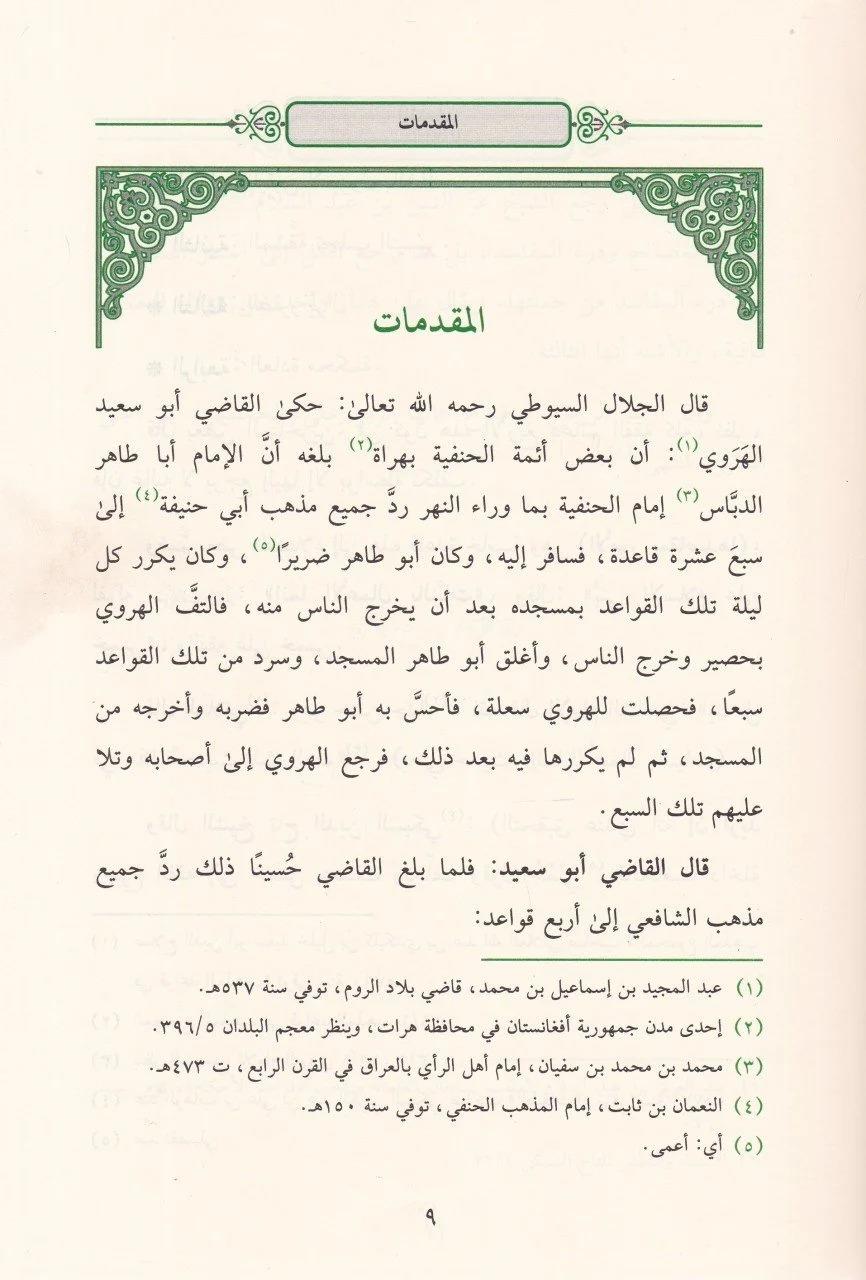 المقدمات
المقدمات
قال الجلال السيوطي رحمه الله تعالىٰ: حكىٰ القاضي أبو سعيد
الهَرَوي(١): أن بعض أئمة الحنفية بهراة(٢) بلغه أنَّ الإمام أبا طاهر
الدبَّاس(٣) إمام الحنفية بما وراء النهر ردَّ جميع مذهب أبي حنيفة(٤) إلىٰ
سبعَ عشرة قاعدة، فسافر إليه، وكان أبو طاهر ضريرًا(٥)، وكان يكرر كل
ليلة تلك القواعد بمسجده بعد أن يخرج الناس منه، فالتفَّ الهروي
بحصير وخرج الناس، وأغلق أبو طاهر المسجد، وسرد من تلك القواعد
سبعًا، فحصلت للهروي سعلة، فأحسَّ به أبو طاهر فضربه وأخرجه من
المسجد، ثم لم يكررها فيه بعد ذلك، فرجع الهروي إلىٰ أصحابه وتلا
عليهم تلك السبع.
قال القاضي أبو سعيد: فلما بلغ القاضي حُسينًا ذلك ردَّ جميع
مذهب الشافعي إلىٰ أربع قواعد:
(١) عبد المجيد بن إسماعيل بن محمد، قاضي بلاد الروم، توفي سنة ٥٣٧هـ.
(٢) إحدى مدن جمهورية أفغانستان في محافظة هرات، وينظر معجم البلدان ٣٩٦/٥.
(٣) محمد بن محمد بن سفيان، إمام أهل الرأي بالعراق في القرن الرابع، ت ٤٧٣هـ.
(٤) النعمان بن ثابت، إمام المذهب الحنفي، توفي سنة ١٥٠هـ.
(٥) أي: أعمى.
٩